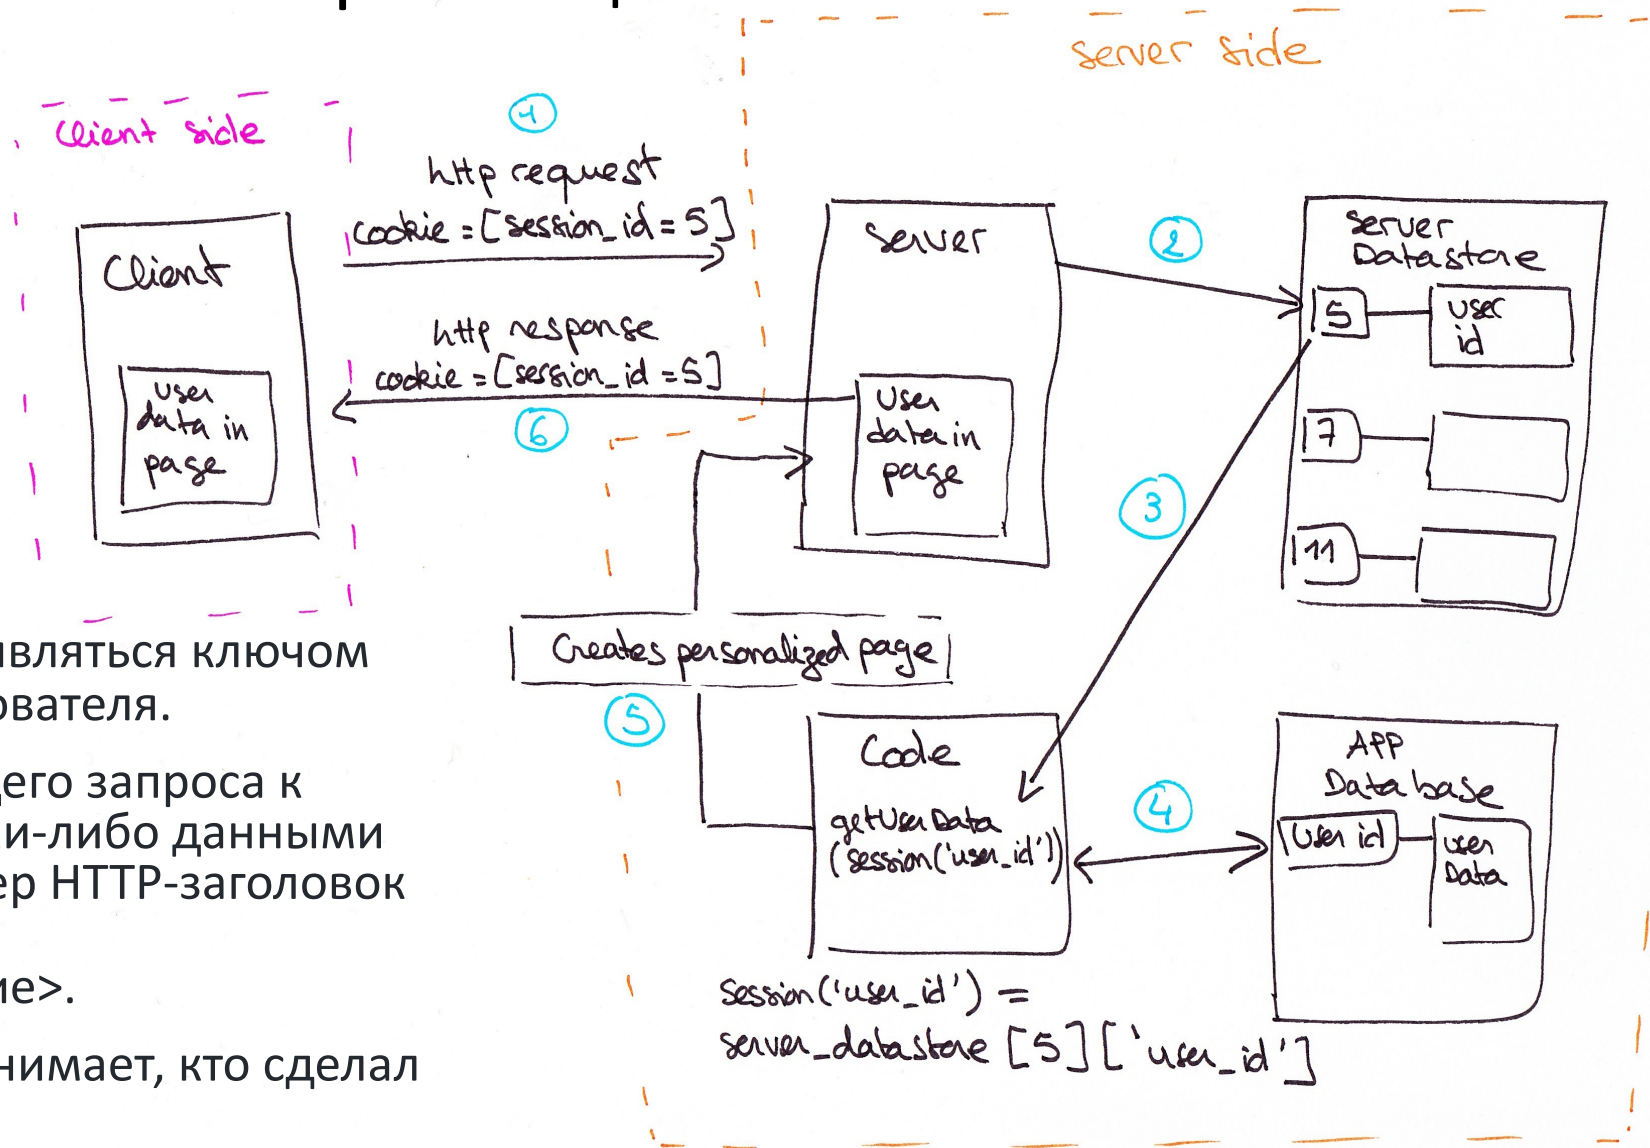 server side
Client side
1
http request
cookie = [session_id = 5]
Client
user
data in
page
http response
cookie = [session_id = 5]
6
Server
User
data in
page
2
Server
Datastore
5
user
id
7
11
3
Creates personalized page
5
Code
getUserData
(session('user_id'))
4
APP
Database
User id
user
Data
session('user_id') =
server_datastore [5]['user_id']
являться ключом
ователя.
его запроса к
и-либо данными
ер HTTP-заголовок
ие>.
нимает, кто сделал